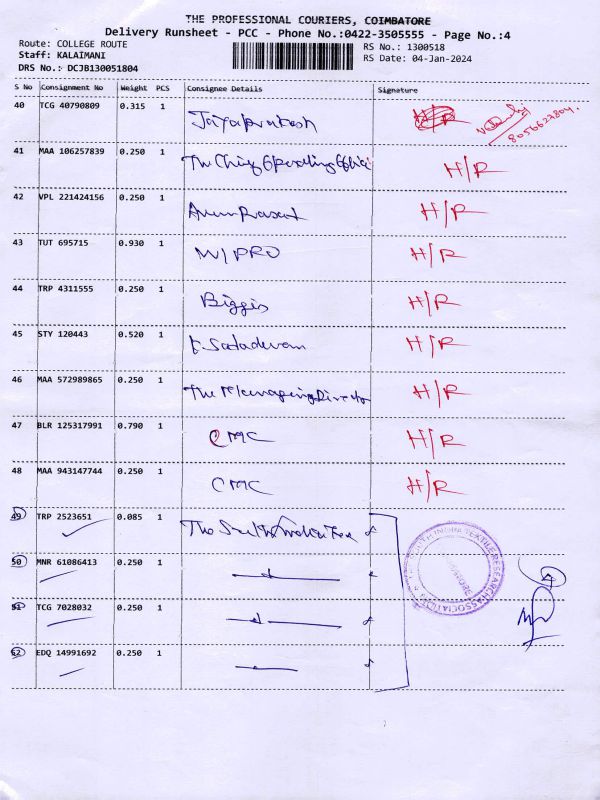 THE PROFESSIONAL COURIERS, COIMBATORE
Delivery Runsheet - PCC - Phone No.:0422-3505555 - Page No.:4
Route: COLLEGE ROUTE
RS No.: 1300518
Staff: KALAIMANI
RS Date: 04-Jan-2024
DRS No.: DCJB130051804
S No Consignment No Weight PCS Consignee Details Signature
40 TCG 40790809 0.315 1 Jayaprakash H/R
8056622804
41 MAA 106257839 0.250 1 The Chief Operating Office H/R
42 VPL 221424156 0.250 1 Arun Prasat H/R
43 TUT 695715 0.930 1 WIPRO H/R
44 TRP 4311555 0.250 1 Biggis H/R
45 STY 120443 0.520 1 H/R
46 MAA 572989865 0.250 1 The Managing Director H/R
47 BLR 125317991 0.790 1 CMC H/R
48 MAA 943147744 0.250 1 CMC H/R
49 TRP 2523651 0.085 1 The South India Tex
50 MNR 61086413 0.250 1
51 TCG 7028032 0.250 1
52 EDQ 14991692 0.250 1
THE SOUTH INDIA TEXTILE RESEARCH ASSOCIATION